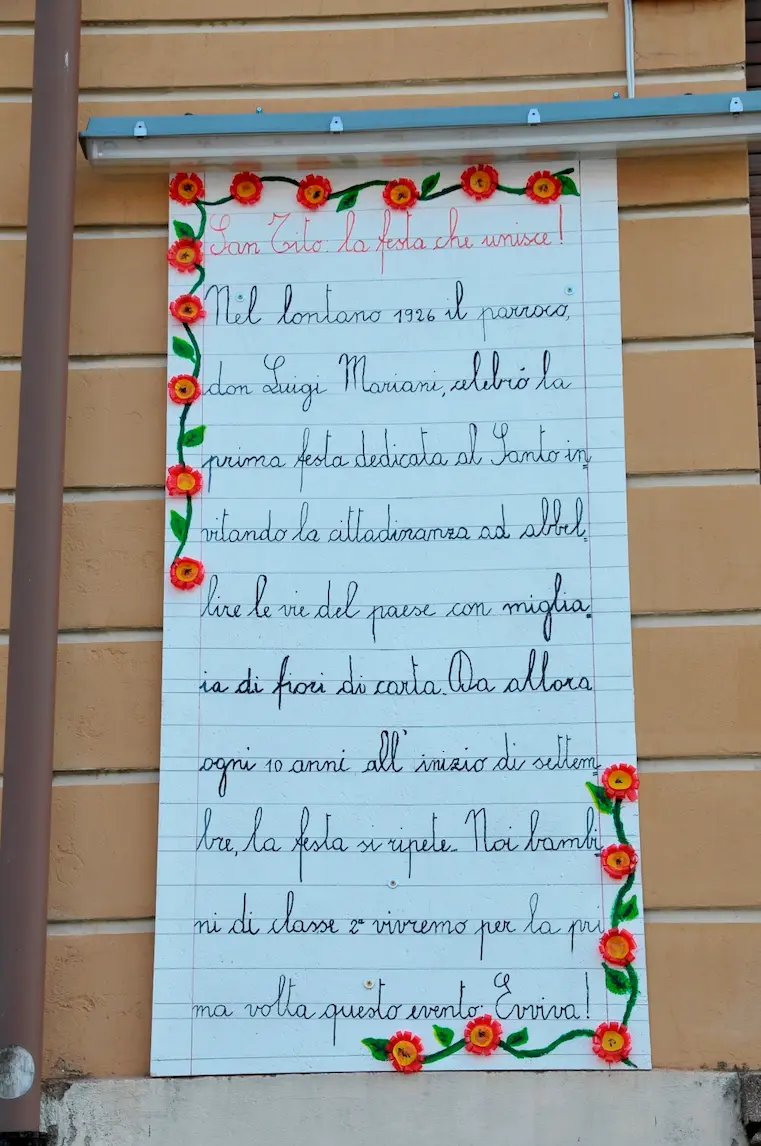 San Tito: la festa che unisce!
Nel lontano 1926 il parroco,
don Luigi Mariani, celebrò la
prima festa dedicata al Santo in=
vitando la cittadinanza ad abbel=
lire le vie del paese con miglia=
ia di fiori di carta. Da allora
ogni 10 anni all' inizio di settem=
bre, la festa si ripete. Noi bambi=
ni di classe 2ª vivremo per la pri
ma volta questo evento. Evviva!